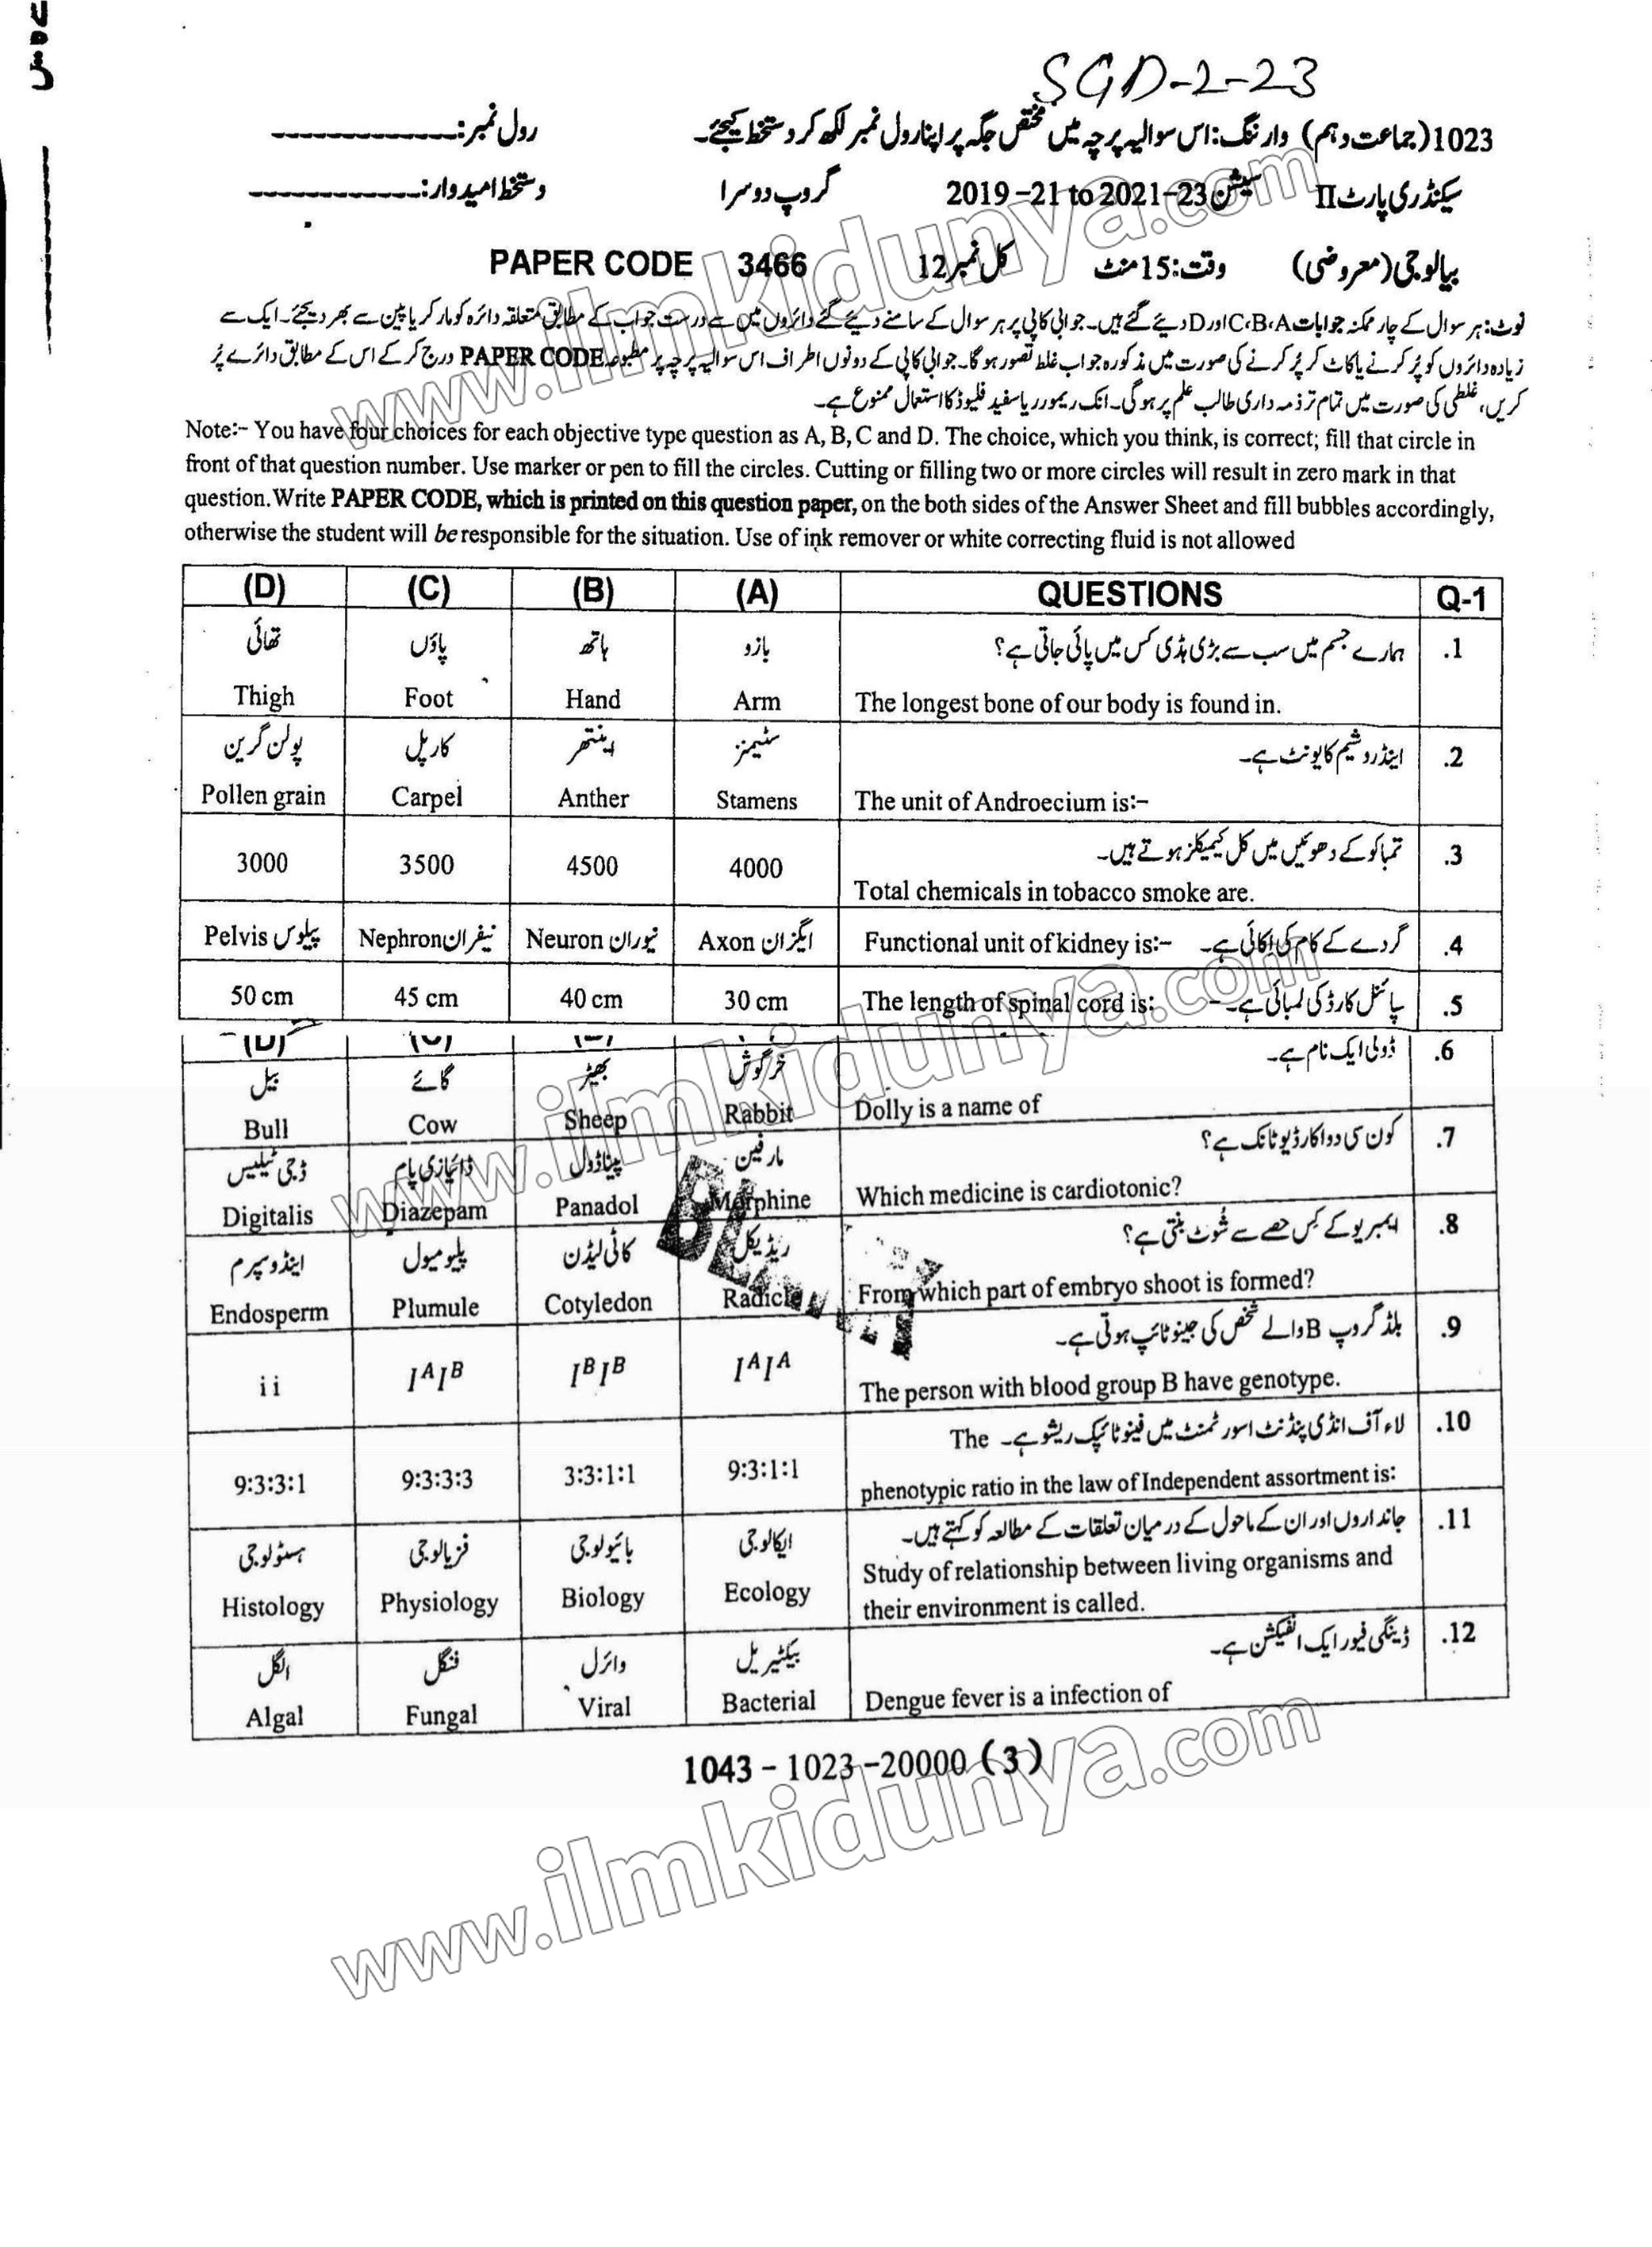 SGD-2-23
1023 (جماعت دہم) وارننگ: اس سوالیہ پرچہ میں مختص جگہ پر اپنا رول نمبر لکھ کر دستخط کیجئے۔ رول نمبر:
سیکنڈری پارٹ II سیشن 2019-21 to 2021-23 گروپ دوسرا دستخط امیدوار:
بیالوجی (معروضی) وقت: 15 منٹ کل نمبر 12 PAPER CODE 3466
نوٹ: ہر سوال کے چار ممکنہ جوابات A، B، C اور D دیئے گئے ہیں۔ جوابی کاپی پر ہر سوال کے سامنے دیئے گئے دائروں میں سے درست جواب کے مطابق متعلقہ دائرہ کو مارکر یا پین سے بھر دیجئے۔ ایک سے
زیادہ دائروں کو پُر کرنے یا کاٹ کر پُر کرنے کی صورت میں مذکورہ جواب غلط تصور ہو گا۔ جوابی کاپی کے دونوں اطراف اس سوالیہ پرچہ پر مطبوعہ PAPER CODE درج کر کے اس کے مطابق دائرے پُر
کریں، غلطی کی صورت میں تمام تر ذمہ داری طالب علم پر ہوگی۔ انک ریمور یا سفید فلیوڈ کا استعمال ممنوع ہے۔
Note:- You have four choices for each objective type question as A, B, C and D. The choice, which you think, is correct; fill that circle in
front of that question number. Use marker or pen to fill the circles. Cutting or filling two or more circles will result in zero mark in that
question. Write PAPER CODE, which is printed on this question paper, on the both sides of the Answer Sheet and fill bubbles accordingly,
otherwise the student will be responsible for the situation. Use of ink remover or white correcting fluid is not allowed
(D) (C) (B) (A) QUESTIONS Q-1
تھائی پاؤں ہاتھ بازو ہمارے جسم میں سب سے بڑی ہڈی کس میں پائی جاتی ہے؟ .1
Thigh Foot Hand Arm The longest bone of our body is found in.
پولن گرین کارپل اینتھر سٹیمنز اینڈروشیم کا یونٹ ہے۔ .2
Pollen grain Carpel Anther Stamens The unit of Androecium is:-
3000 3500 4500 4000 تمباکو کے دھوئیں میں کل کیمیکلز ہوتے ہیں۔ .3
Total chemicals in tobacco smoke are.
Pelvis پیلوس Nephron نیفران Neuron نیوران Axon ایگزان Functional unit of kidney is:- گردے کے کام کی اکائی ہے۔ .4
50 cm 45 cm 40 cm 30 cm The length of spinal cord is: سپائنل کارڈ کی لمبائی ہے۔ .5
بیل گائے بھیڑ خرگوش ڈولی ایک نام ہے۔ .6
Bull Cow Sheep Rabbit Dolly is a name of
ڈجی ٹیلیس ڈائیازی پام پیناڈول مارفین کون سی دوا کارڈیوٹانک ہے؟ .7
Digitalis Diazepam Panadol Morphine Which medicine is cardiotonic?
اینڈوسپرم پلیومیول کاٹی لیڈن ریڈیکل ایمبریو کے کس حصے سے شُوٹ بنتی ہے؟ .8
Endosperm Plumule Cotyledon Radicle From which part of embryo shoot is formed?
بلڈ گروپ B والے شخص کی جینوٹائپ ہوتی ہے۔ .9
i i IᴬIᴮ IᴮIᴮ IᴬIᴬ The person with blood group B have genotype.
لاء آف انڈی پنڈنٹ اسورٹمنٹ میں فینوٹائپک ریشو ہے۔ The .10
9:3:3:1 9:3:3:3 3:3:1:1 9:3:1:1 phenotypic ratio in the law of Independent assortment is:
ہسٹولوجی فزیالوجی بائیولوجی ایکالوجی جانداروں اور ان کے ماحول کے درمیان تعلقات کے مطالعہ کو کہتے ہیں۔ .11
Histology Physiology Biology Ecology Study of relationship between living organisms and
their environment is called.
الگل فنگل وائرل بیکٹیریل ڈینگی فیور ایک انفیکشن ہے۔ .12
Algal Fungal Viral Bacterial Dengue fever is a infection of
1043 - 1023 -20000 (3)
www.ilmkidunya.com
www.ilmkidunya.com
www.ilmkidunya.com